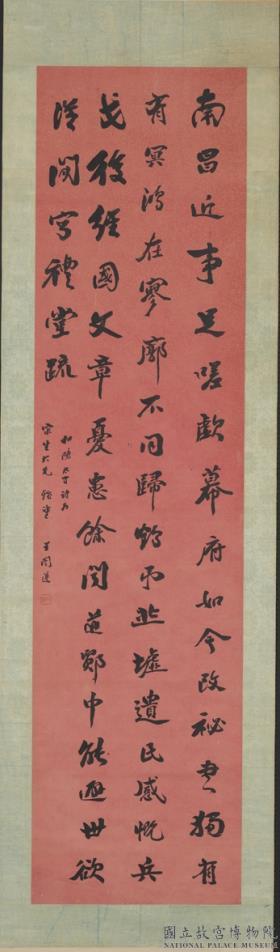 南昌近事足嗟歔幕府如今改祕書獨有
有冥鴻在寥廓不同歸鶴弔丘墟遺民感慨兵
戈後經國文章憂患餘聞道鄴中能避世欲
從寫禮堂疏
和陳詩為
宗生大兄
王闓運
國立故宮博物院
NATIONAL PALACE MUSEUM